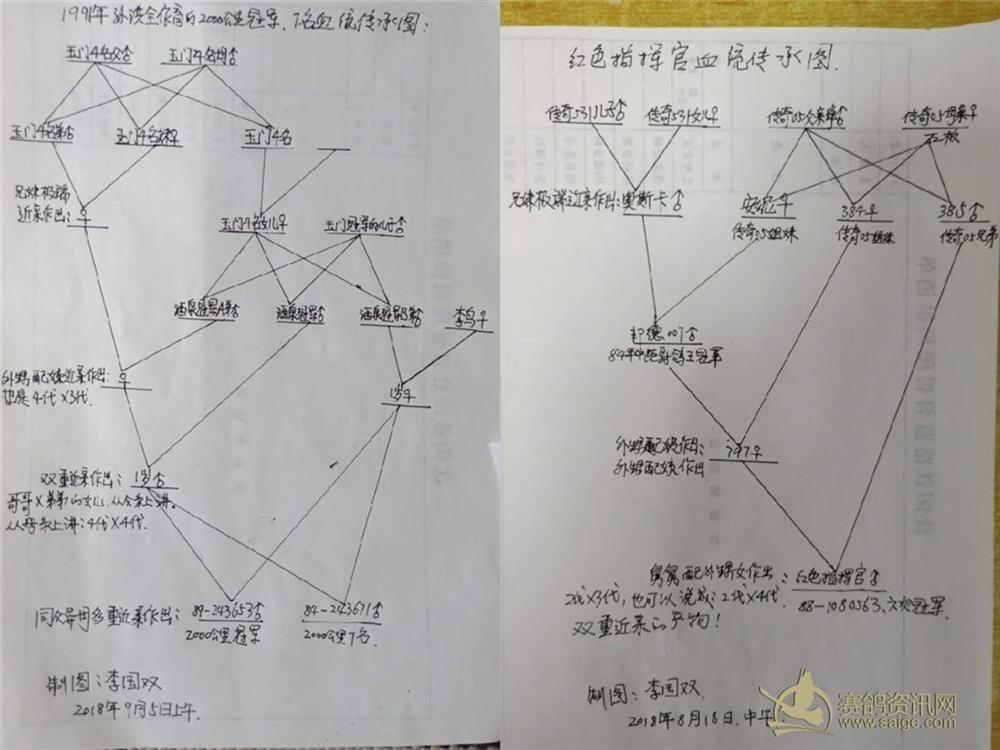 1991年孙洪全作育的2000公里冠军、7名血统传承图:
玉门4名父♂ 玉门4名母♂
玉门4名弟♂ 玉门4名妹♀ 玉门4名
兄妹极端
近亲作出: ♀
玉门4名女儿♀ 玉门冠军的儿子♂
酒泉冠军A弟♂ 酒泉冠军♂ 酒泉冠军B弟♂ 李鸟♀
外甥配姨近亲作出: ♀
也是4代X3代.
1岁♀
双重近亲作出: 1岁♂
哥哥X弟弟的女儿.从父系上讲。
从母系上讲:4代X4代.
同父异母多重近亲作出: 89-243653♂ 84-243671♂
2000公里冠军 2000公里7名
制图:李国双
2018年9月5日上午.
红色指挥官血统传承图.
传奇531儿子♂ 传奇531女儿♀ 传奇05父亲宰♂ 传奇05母亲♀
石板
兄妹极端近亲作出:奥斯卡♂ 安妮♀ 384♀ 385♂
传奇05姐妹 传奇05姐妹 传奇05兄弟
邦德007♂
84年中距离鸽王冠军
外甥配姨作出: 797♀
外甥配姨作出
舅舅配外甥女作出: 红色指挥官♂
2代X3代,也可以说成:2代X4代. 88-1080563、六次冠军
双重近亲的产物!
制图:李国双.
2018年8月18日.中午
赛鸽资讯网
www.saige.com